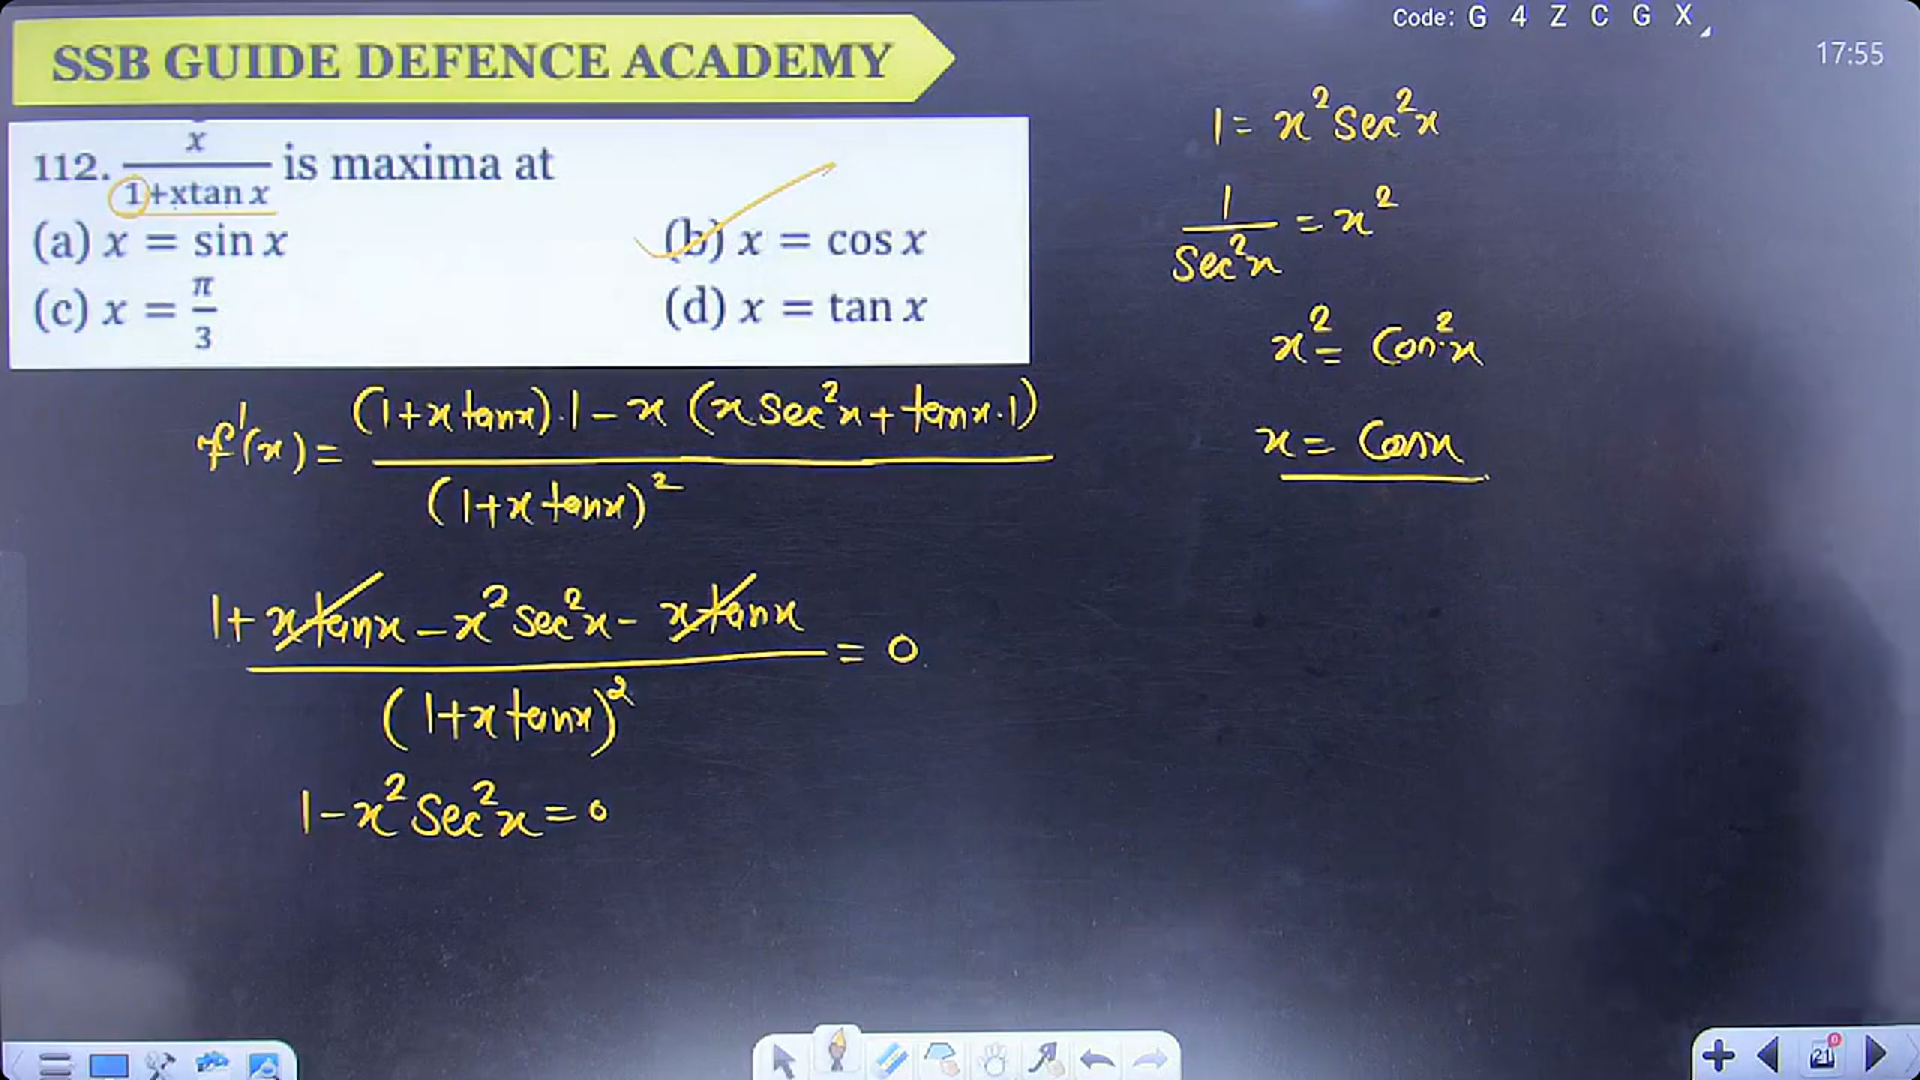 Code: G 4 Z C G X
17:55
SSB GUIDE DEFENCE ACADEMY
112. x/(1+xtan x) is maxima at
(a) x = sin x
(b) x = cos x
(c) x = π/3
(d) x = tan x
f'(x) = ((1+x tanx).1 - x (x sec²x + tanx.1))/(1+x tanx)²
(1+ x tanx - x² sec²x - x tanx)/(1+x tanx)² = 0
1 - x² Sec²x = 0
1 = x² Sec²x
1/Sec²x = x²
x² = Cos²x
x = Cosx
21
0